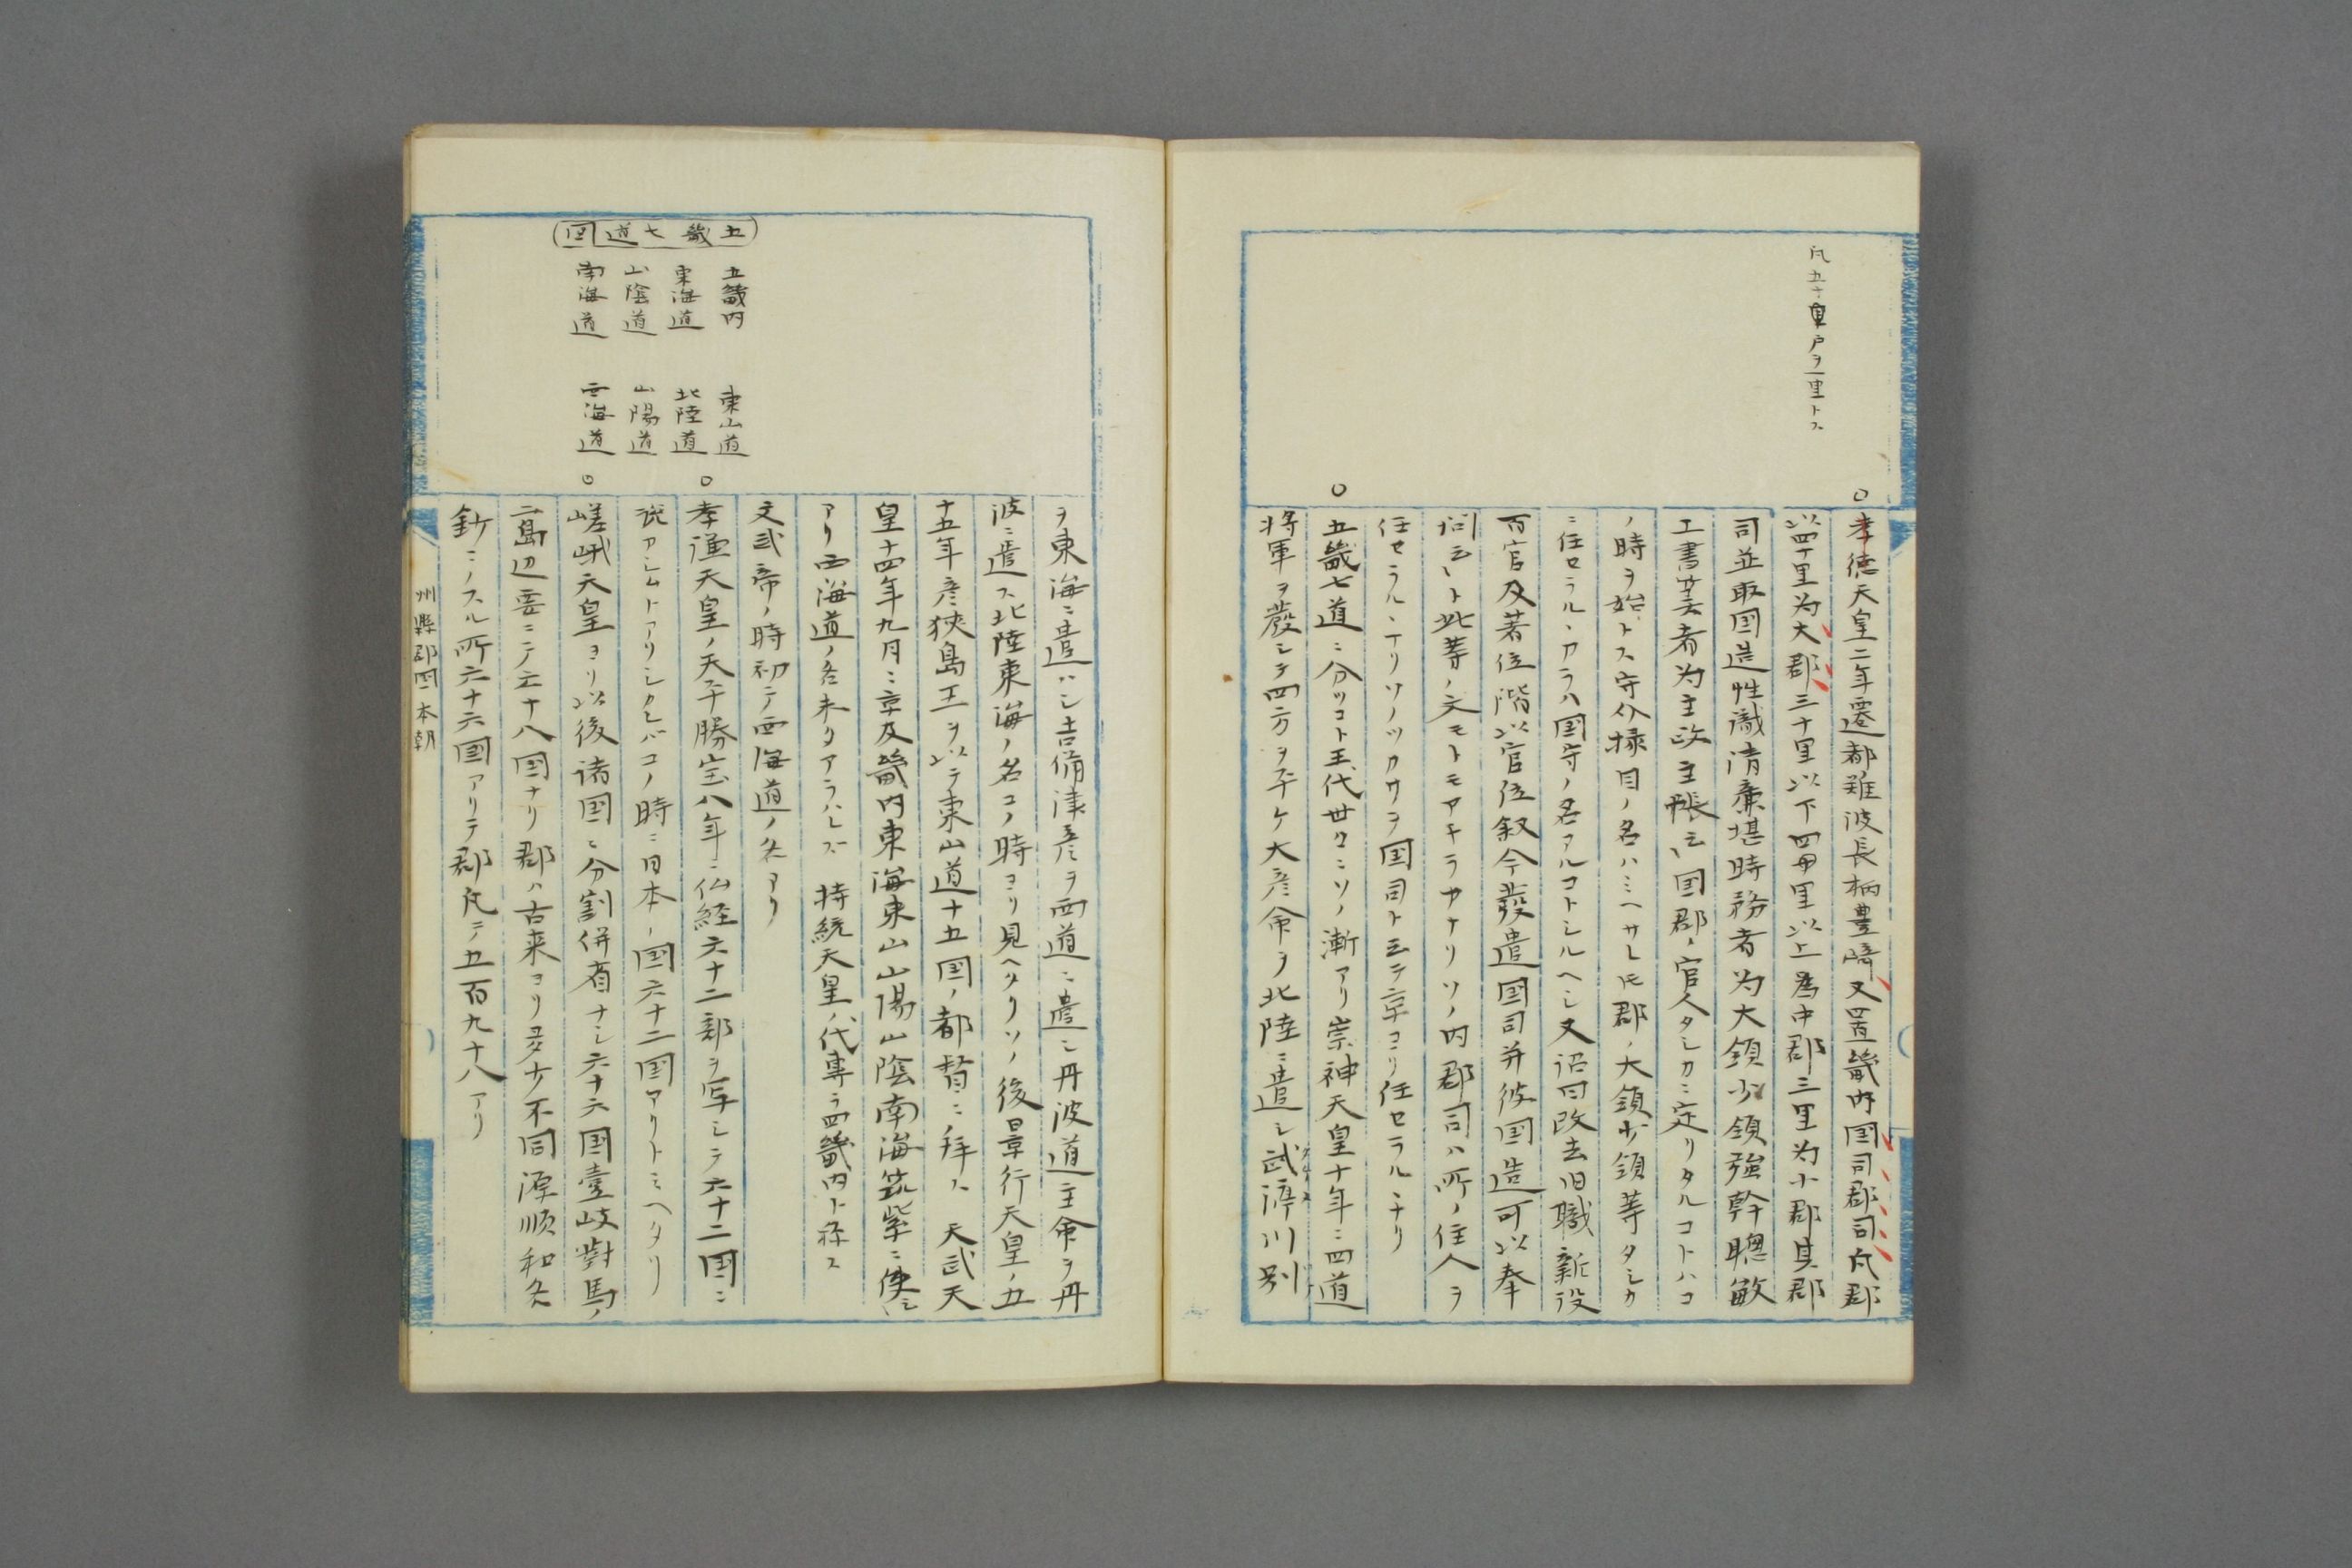 凡五十戸ヲ一里トス
○孝徳天皇二年遷都難波長柄豊﨑又置畿内国司郡司凡郡
以四十里为大郡三十里以下四里以上為中郡三里为小郡其郡
司並取国造性識清廉堪時務者为大領少領強幹聰敏
工書筭者为主政主帳云〻国郡ノ官人タシカニ定リタルコトハコ
ノ時ヲ始トス守介掾目ノ名ハミヘサレ𪜈郡ノ大領少領等タシカ
ニ任セラルヽカラハ国守ノ名アルコトシルヘシ又詔曰改去旧職新役
百官及著位階以官位叙今發遣国司并彼国造可以奉
詞云〻ト此等ノ文モトモアキラカナリソノ内郡司ハ所ノ住人ヲ
任セラルヽナリソノツカサヲ国司ト云テ京ヨリ任セラルヽナリ
○五畿七道ニ分ツコト王代世々ニソノ漸アリ崇神天皇十年ニ四道
将軍ヲ發シテ四方ヲ平ケ大彦命ヲ北陸ニ遣シ武渟川別
ヲ東海ニ遣ハシ吉備津彦ヲ西道ニ遣シ丹波道主命ヲ丹
波ニ遣ス北陸東海ノ名コノ時ヨリ見ヘタリソノ後景行天皇ノ五
十五年彦狹島王ヲ以テ東山道十五国ノ都督ニ拜ス 天武天
皇十四年九月ニ京及畿内東海東山山陽山陰南海筑紫ニ使
アリ西海道ノ名未タアラハレズ 持統天皇ノ代専ラ四畿内ト称ス
文武帝ノ時初テ西海道ノ名アリ
五畿七道国
五畿内 東山道
東海道 北陸道
山陰道 山陽道
南海道 西海道
○孝謙天皇ノ天平勝宝八年ニ仏経六十二部ヲ写シテ六十二国ニ
アシムトアリシカレバコノ時ニ日本ノ国六十二国アリトミヘタリ
○嵯峨天皇ヨリ以後諸国ニ分割併省ナシ六十六国壹岐對馬ノ
二島辺要ニテ六十八国ナリ郡ハ古来ヨリ多少不同源順和名
鈔ニノスル所六十六国アリテ郡凡テ五百九十八アリ
州縣郡国 本朝